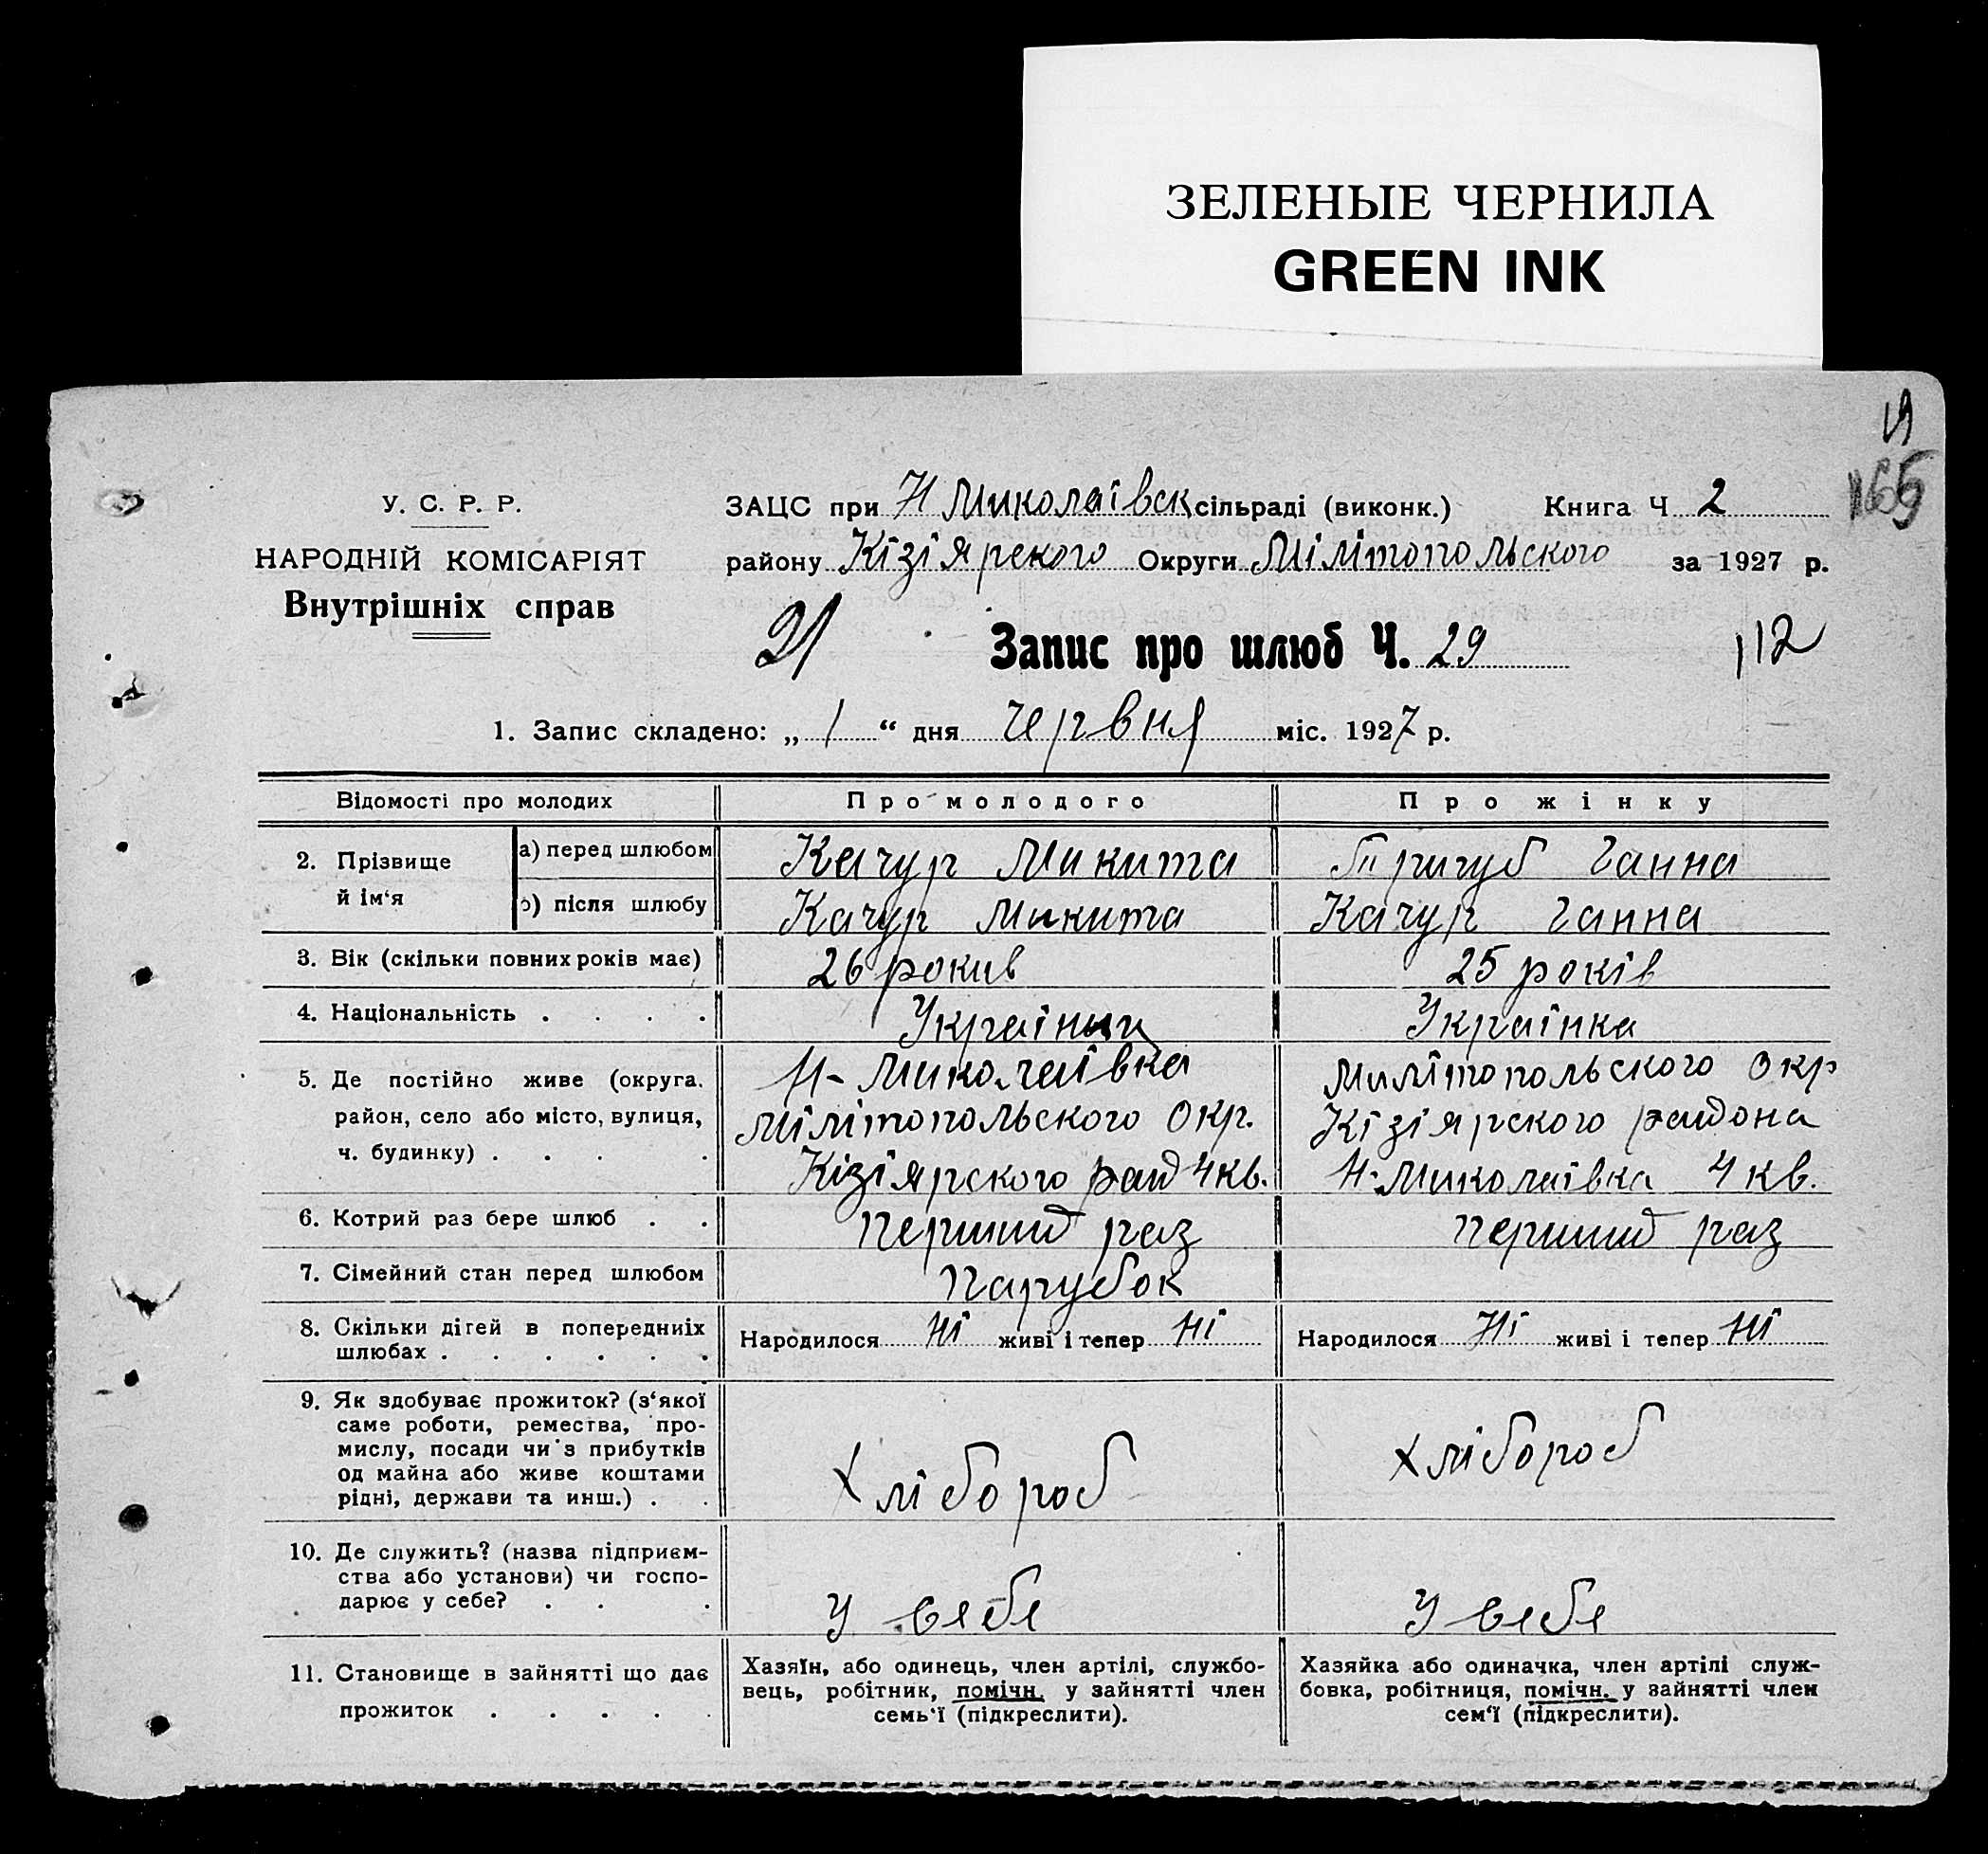 ЗЕЛЕНЫЕ ЧЕРНИЛА
GREEN INK
19
165
У. С. Р. Р.
НАРОДНІЙ КОМІСАРІЯТ
Внутрішніх справ
ЗАЦС при Н Миколаївск сільраді (виконк.) Книга Ч 2
району Кізіярского Округи Мілітопольского за 1927 р.
21 Запис про шлюб Ч. 29 112
1. Запис складено: „ 1 “ дня червня міс. 1927 р.
Відомості про молодих Про молодого Про жінку
2. Прізвище й ім‘я а) перед шлюбом Качур Микита Тригуб Ганна
в) після шлюбу Качур Микита Качур Ганна
3. Вік (скільки повних років має) 26 рокив 25 років
4. Національність . . . . Українец Українка
5. Де постійно живе (округа, Н-Миколаївка Милітопольского Окр
район, село або місто, вулиця, Мілітопольского Окр. Кізіярского района
ч. будинку) . . . . Кізіярского рай 4 кв. Н-Миколаївка 4 кв.
6. Котрий раз бере шлюб . . Перший раз Перший раз
7. Сімейний стан перед шлюбом Парубок
8. Скільки дітей в попередниіх
шлюбах . . . . . . Народилося Ні живі і тепер Ні Народилося Ні живі і тепер Ні
9. Як здобуває прожиток? (з‘якої
саме роботи, ремества, про-
мислу, посади чи з прибутків
од майна або живе коштами
рідні, держави та инш.) . . Хлібороб Хлібороб
10. Де служить? (назва підприєм-
ства або установи) чи госпо-
дарює у себе? . . . У себе У себе
11. Становище в зайнятті що дає
прожиток . . . . .
Хазяїн, або одинець, член артілі, службо-
вець, робітник, помічн. у зайнятті член
семь‘ї (підкреслити).
Хазяйка або одиначка, член артілі служ-
бовка, робітниця, помічн. у зайнятті член
сем‘ї (підкреслити).